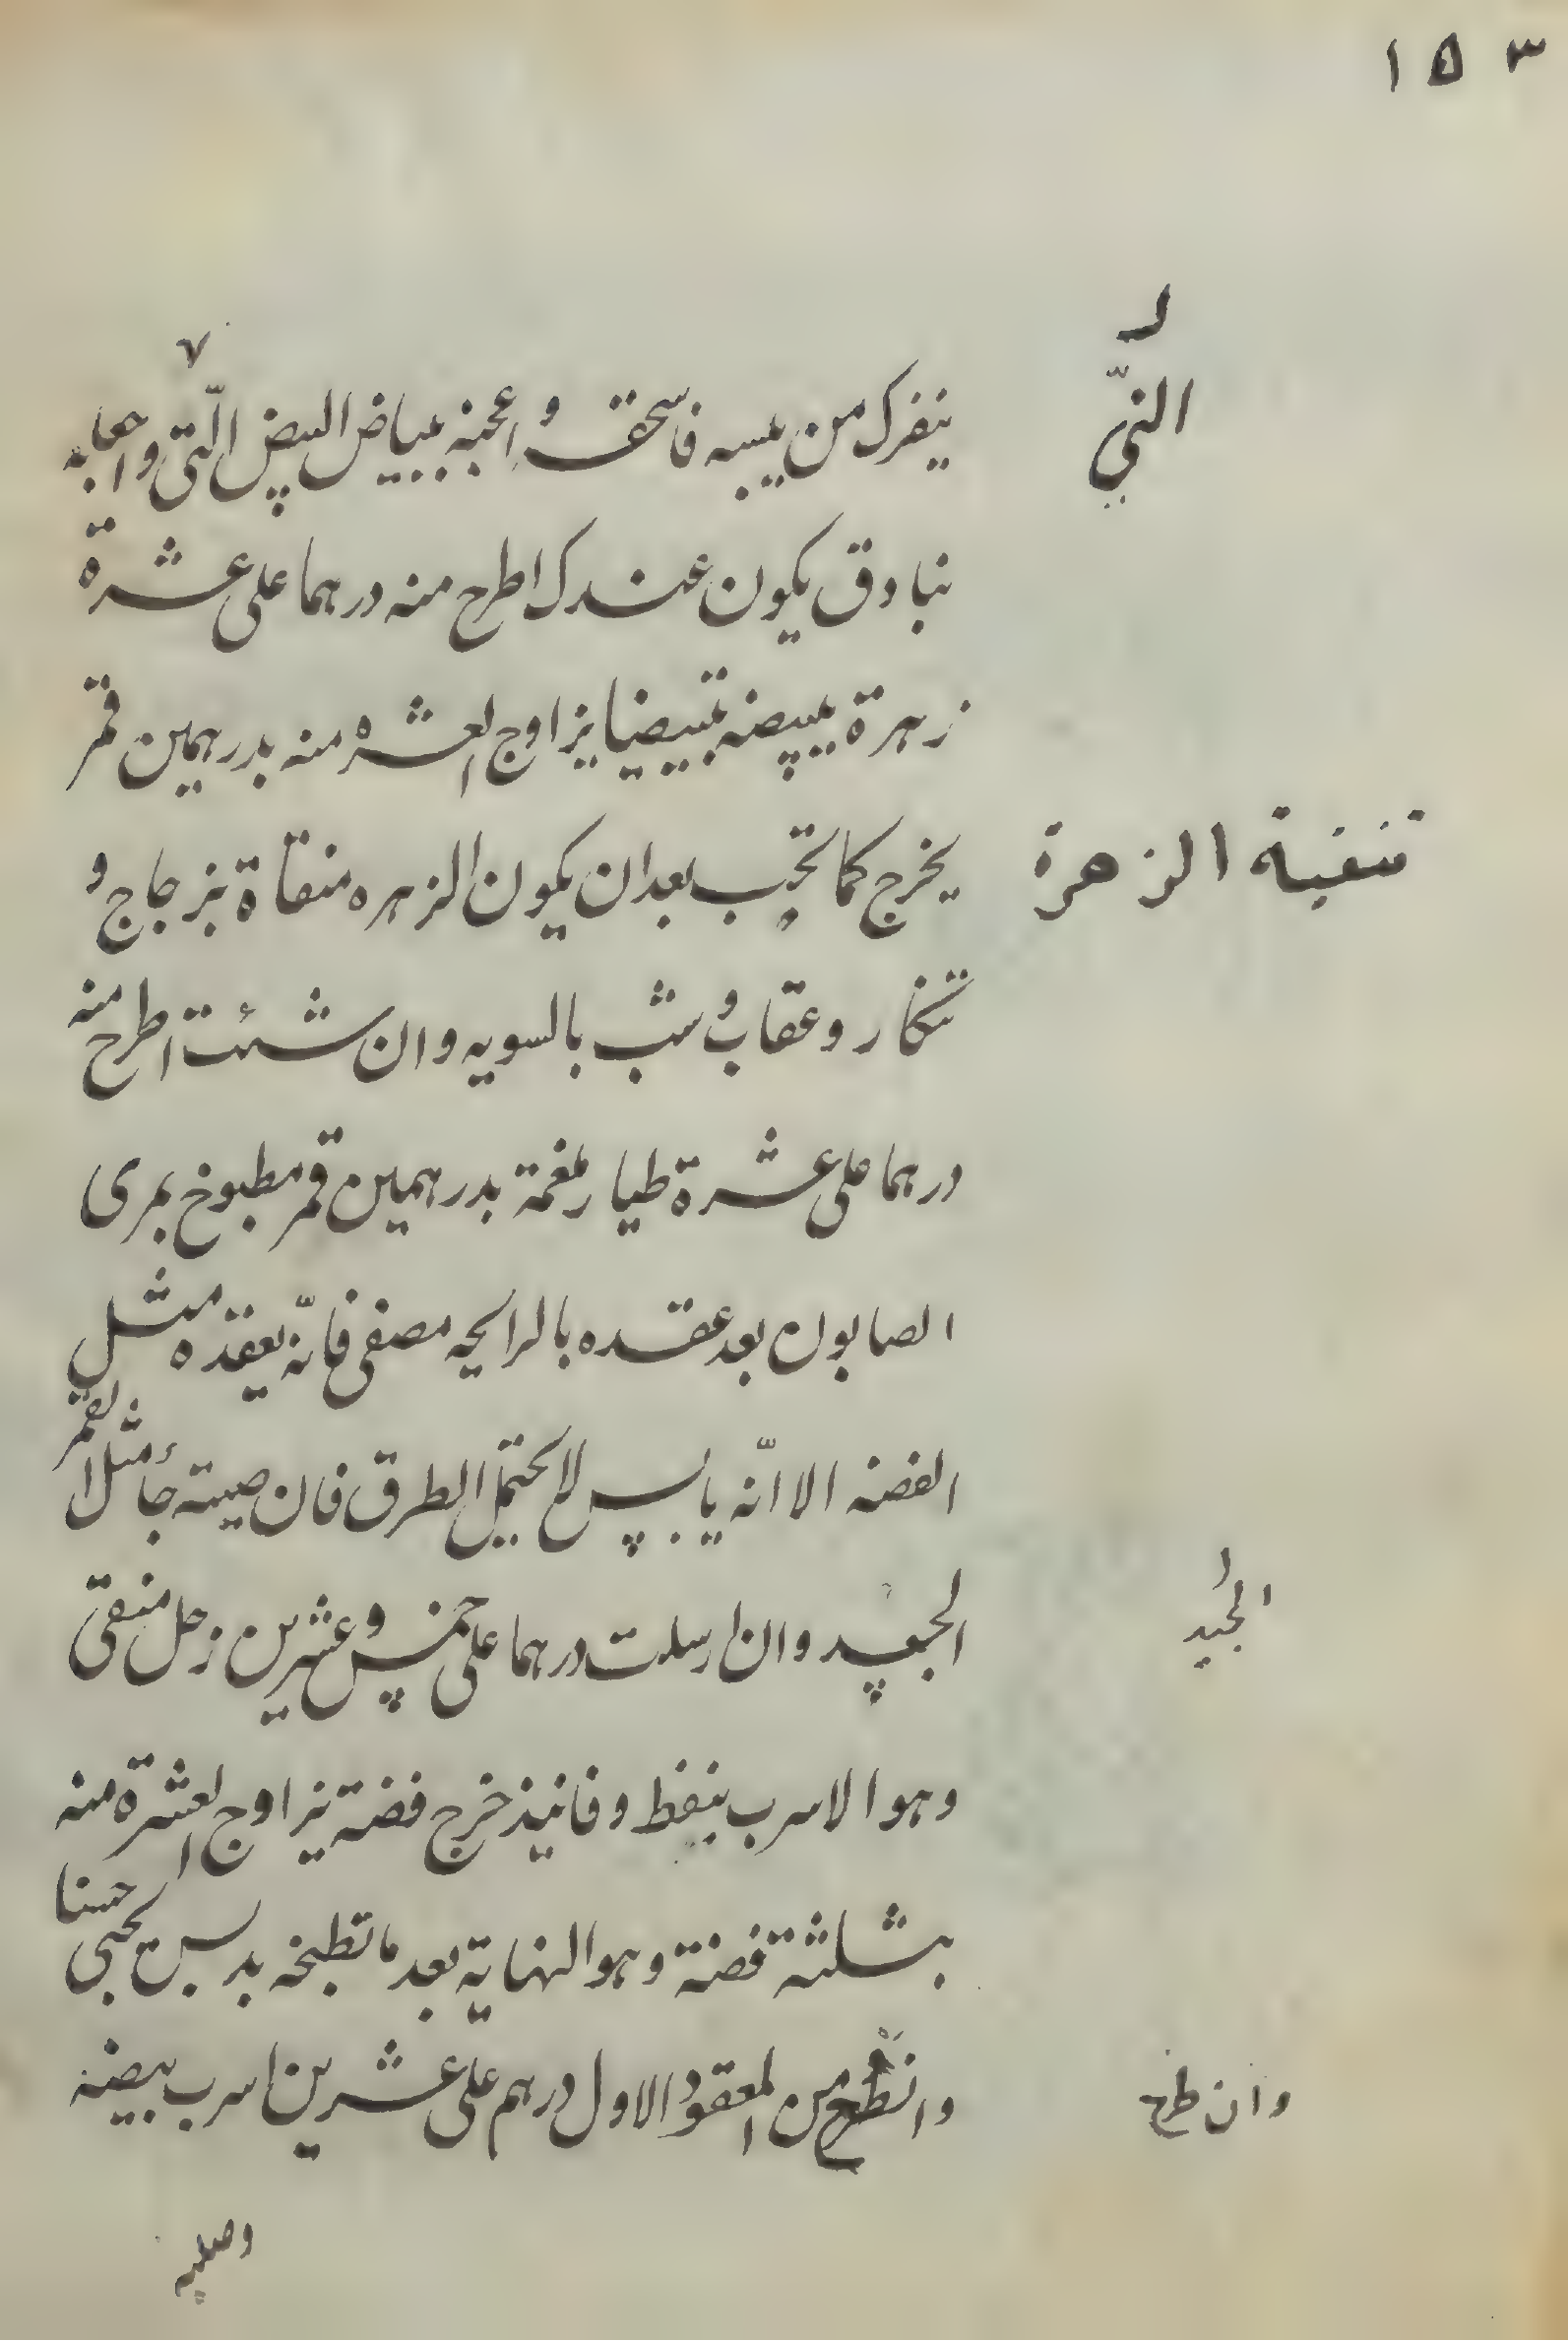 ١٥٣
النيّ
ينفرك من يبسه فاسحقه واعجنه ببياض البيض الّتى واجعله
بنادق يكون عندك اطرح منه درهما على عشرة
زهرة يبيضه تبييضا يزاوج العشره منه بدرهمين قمر
تنقية الزهرة
يخرج كما تحب بعد ان يكون الزهره منقاة بزجاج و
تنكار وعقاب وشب بالسويه وان شئت اطرح منه
درهما على عشرة طيار ملغمة بدرهمين قمر مطبوخ بمرى
الصابون بعد عقده بالرايحه مصفى فانّه يعقده مثل
الفضه الا انّه يابس لا يحتمل الطرق فان صبته جأ مثل القمر
الجيد
الجيد وان ارسلت درهما على خمس وعشرين زحل منقى
وهو الاسرب بنفط وفانيذ خرج فضة يزاوج العشرة منه
بثلثة فضة وهو النهاية بعد ما تطبخه بدبس يجى حسنا
وان طرح
وان طرح من المعقود الاول درهم على عشرين اسرب بيضه
وصلبه